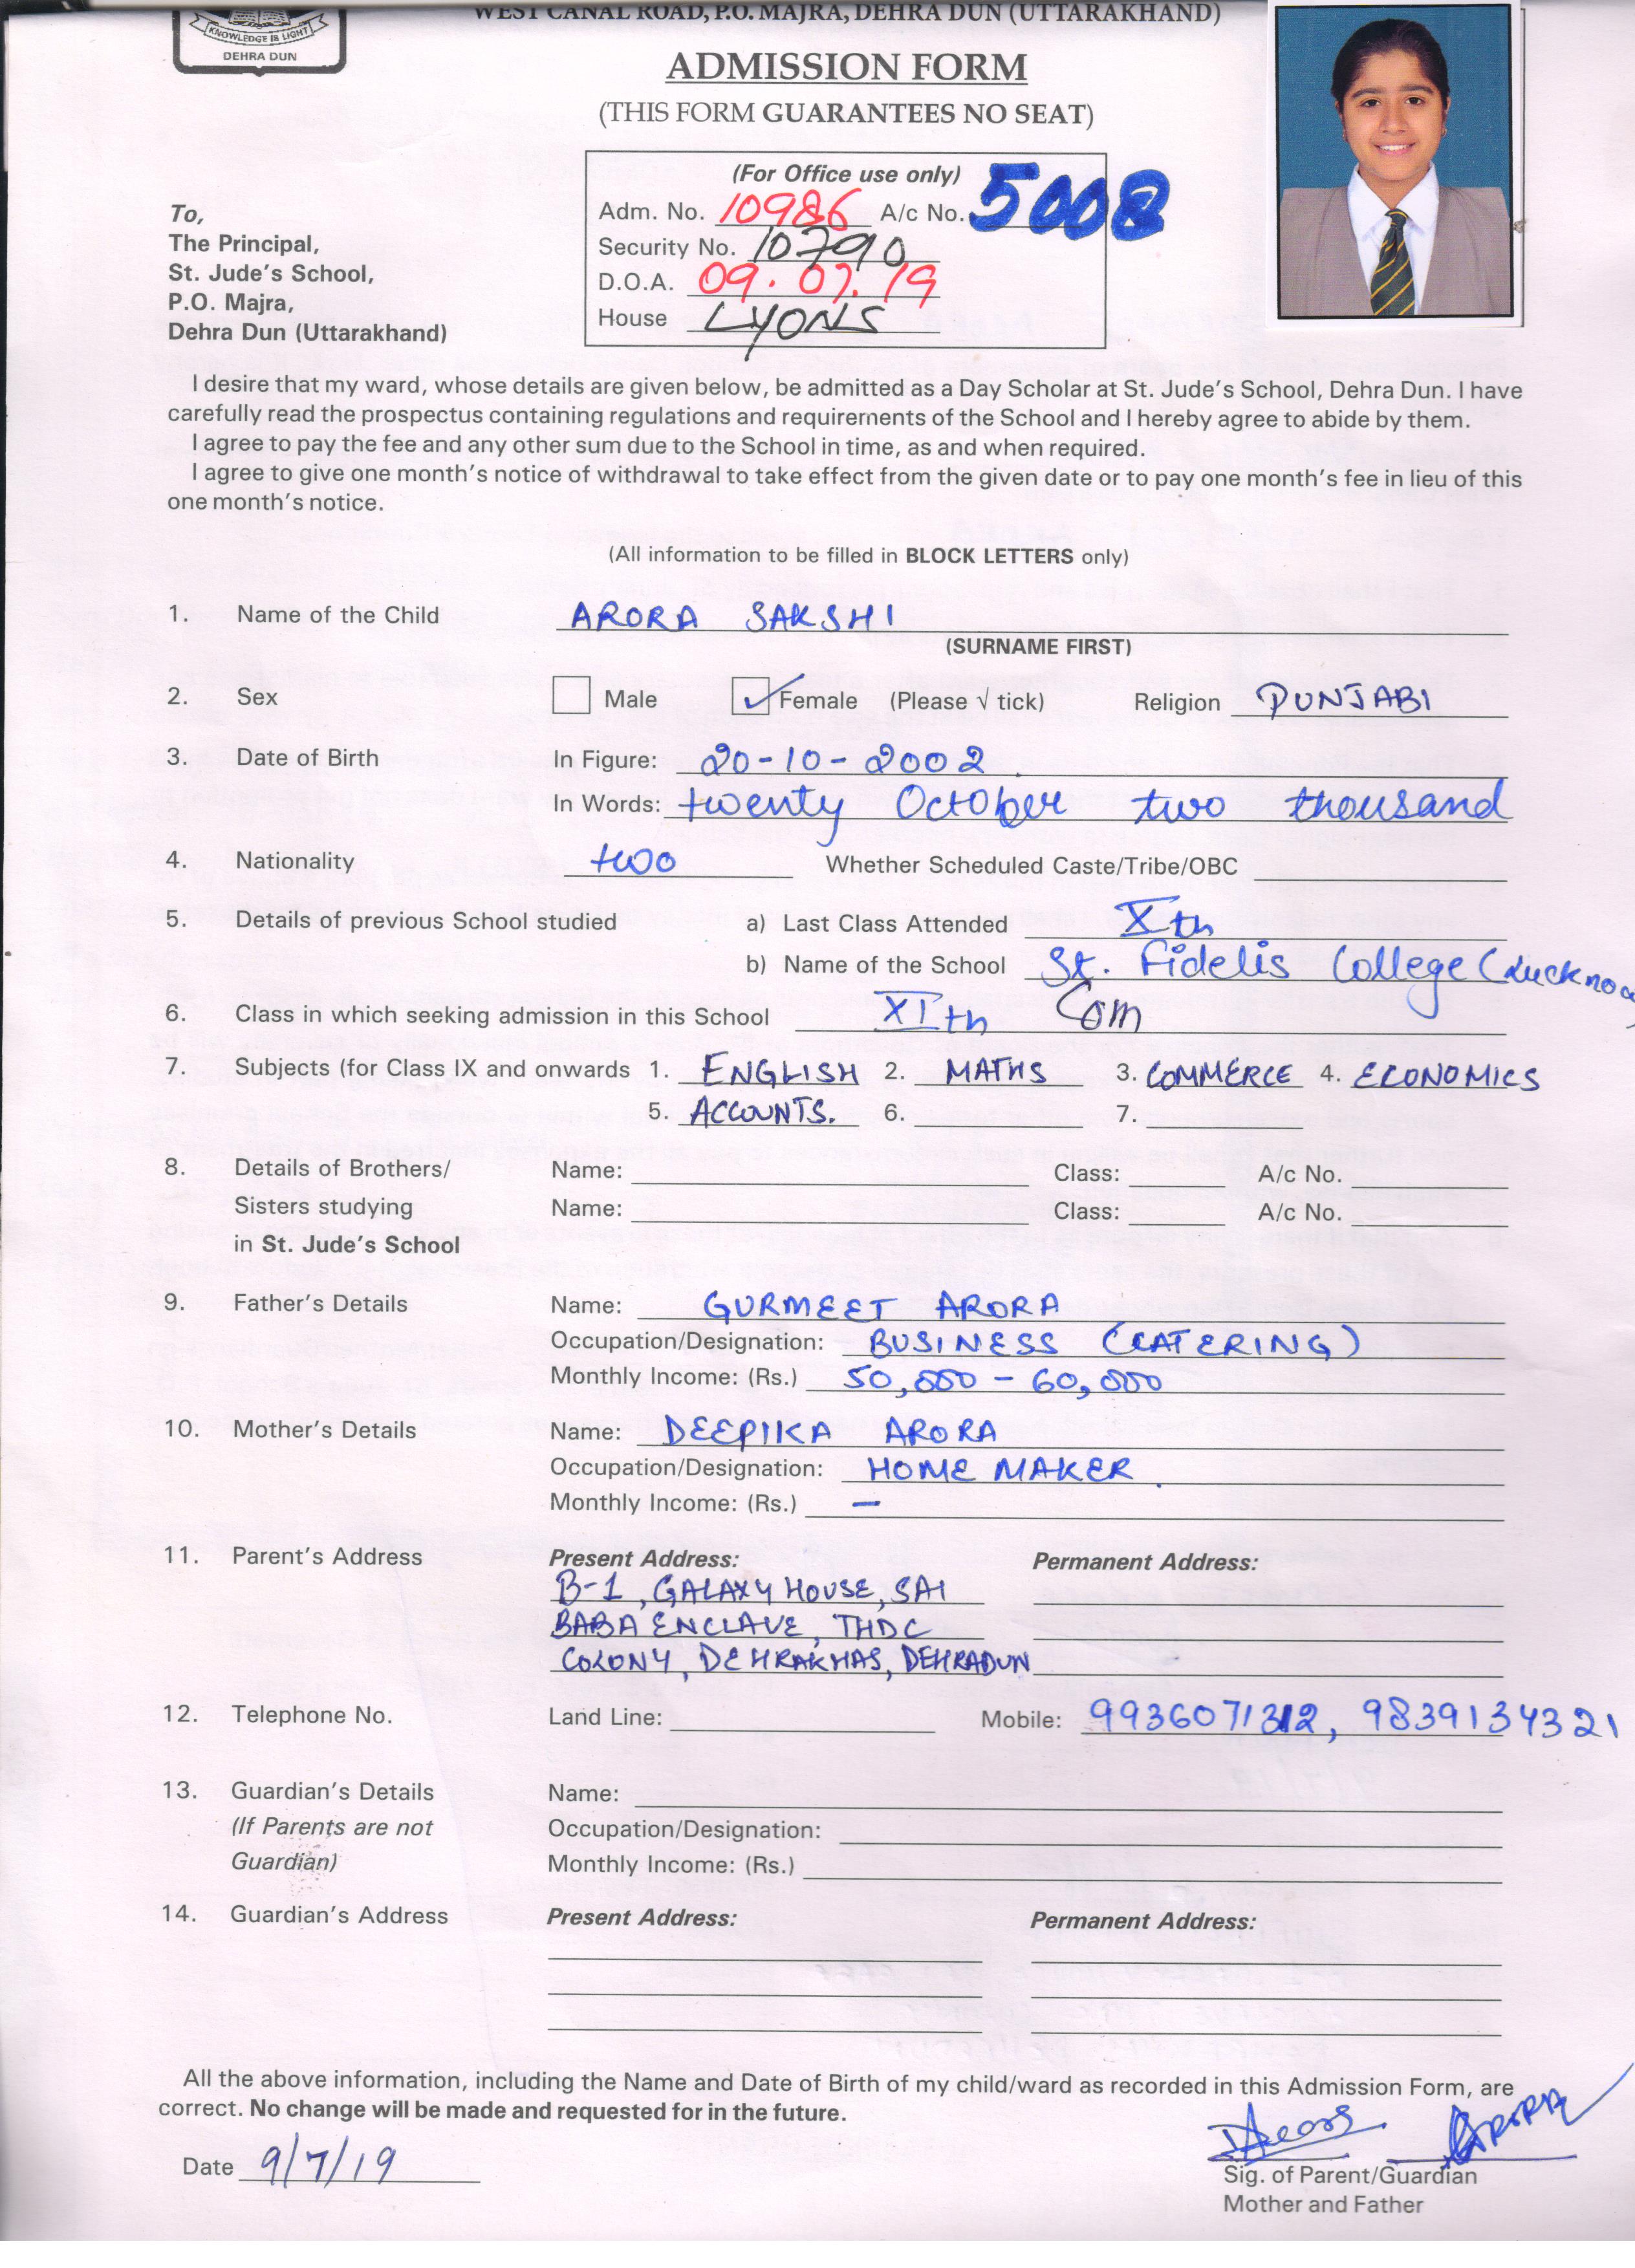 KNOWLEDGE IS LIGHT
DEHRA DUN
WEST CANAL ROAD, P.O. MAJRA, DEHRA DUN (UTTARAKHAND)
ADMISSION FORM
(THIS FORM GUARANTEES NO SEAT)
(For Office use only)
Adm. No. 10986 A/c No. 5008
Security No. 10790
D.O.A. 09.07.19
House LYONS
To,
The Principal,
St. Jude's School,
P.O. Majra,
Dehra Dun (Uttarakhand)
I desire that my ward, whose details are given below, be admitted as a Day Scholar at St. Jude's School, Dehra Dun. I have
carefully read the prospectus containing regulations and requirements of the School and I hereby agree to abide by them.
I agree to pay the fee and any other sum due to the School in time, as and when required.
I agree to give one month's notice of withdrawal to take effect from the given date or to pay one month's fee in lieu of this
one month's notice.
(All information to be filled in BLOCK LETTERS only)
1. Name of the Child ARORA SAKSHI
(SURNAME FIRST)
2. Sex Male Female (Please √ tick) Religion PUNJABI
3. Date of Birth In Figure: 20-10-2002
In Words: twenty October two thousand
4. Nationality two Whether Scheduled Caste/Tribe/OBC
5. Details of previous School studied a) Last Class Attended Xth
b) Name of the School St. Fidelis College (Lucknow)
6. Class in which seeking admission in this School XIth Com
7. Subjects (for Class IX and onwards 1. ENGLISH 2. MATHS 3. COMMERCE 4. ECONOMICS
5. ACCOUNTS. 6. 7.
8. Details of Brothers/ Name: Class: A/c No.
Sisters studying Name: Class: A/c No.
in St. Jude's School
9. Father's Details Name: GURMEET ARORA
Occupation/Designation: BUSINESS (CATERING)
Monthly Income: (Rs.) 50,000 - 60,000
10. Mother's Details Name: DEEPIKA ARORA
Occupation/Designation: HOME MAKER
Monthly Income: (Rs.) —
11. Parent's Address Present Address: Permanent Address:
B-1, GALAXY HOUSE, SAI
BABA ENCLAVE, THDC
COLONY, DEHRAKHAS, DEHRADUN
12. Telephone No. Land Line: Mobile: 9936071312, 9839134321
13. Guardian's Details Name:
(If Parents are not Occupation/Designation:
Guardian) Monthly Income: (Rs.)
14. Guardian's Address Present Address: Permanent Address:
All the above information, including the Name and Date of Birth of my child/ward as recorded in this Admission Form, are
correct. No change will be made and requested for in the future.
Date 9/7/19
Sig. of Parent/Guardian
Mother and Father